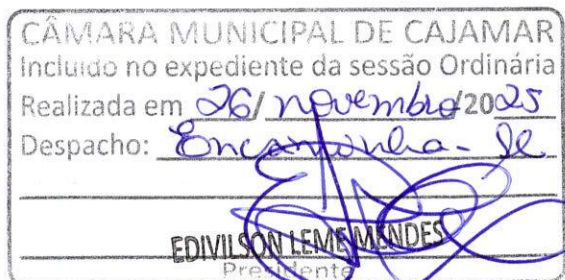 CÂMARA MUNICIPAL DE CAJAMAR
Incluido no expediente da sessão Ordinária
Realizada em 26/ novembro/2025
Despacho: Encaminha-se
EDIVILSON LEME MENDES
Presidente